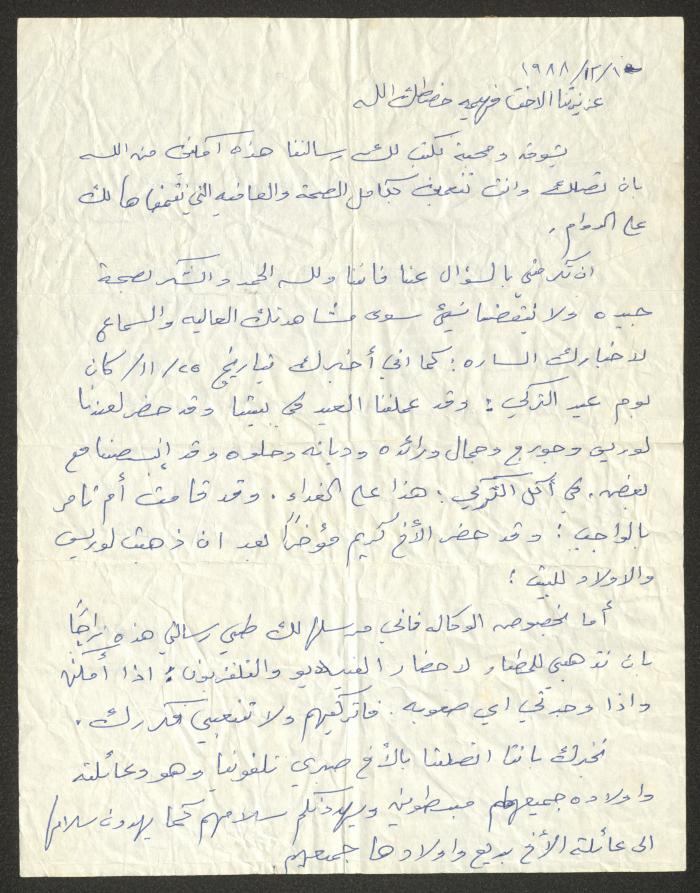 ١٩٨٨/١٢/١٥
عزيزتنا الاخت فهيمه حفظك الله
بشوق ومحبة نكتب لك رسالتنا هذه آملين من الله
بان تصلك وانت تنعمين بكامل الصحة والعافيه التي نتمناها لك
على الدوام.
ان تكرمتي بالسؤال عنا فاننا ولله الحمد والشكر بصحة
جيده ولا ينقصنا شيئ سوى مشاهدتك الغاليه والسماع
لاخبارك الساره: كما اني أخبرك بتاريخ ١١/٢٥/ كان
يوم عيد التركي: وقد عملنا العيد في بيتنا وقد حضر لعندنا
لوريس وجورج وجمال ورائده وديانه وحلوه وقد إنبصطنا مع
بعض. في أكل التركي: هذا على الغداء. وقد قامت أم تامر
بالواجب: وقد حضر الأخ كريم مؤخراً بعد ان ذهبت لوريس
والاولاد للبيت:
أما بخصوص الوكاله فاني مرسلها لك طي رسالتي هذه راجياً
بان تذهبي للمطار لاحضار الفيديو والتلفزيون: اذا أمكن
واذا وجدتي اي صعوبه. فاتركيهم ولا تتعبي فكرك.
نخبرك باننا اتصلنا بالأخ صبري تلفونيا وهو وعائلته
واولاده جميعهم مبسطوين ويهدونكم سلامهم كما يهدون سلامهم
الى عائلة الأخ بديع واولادها جميعهم.